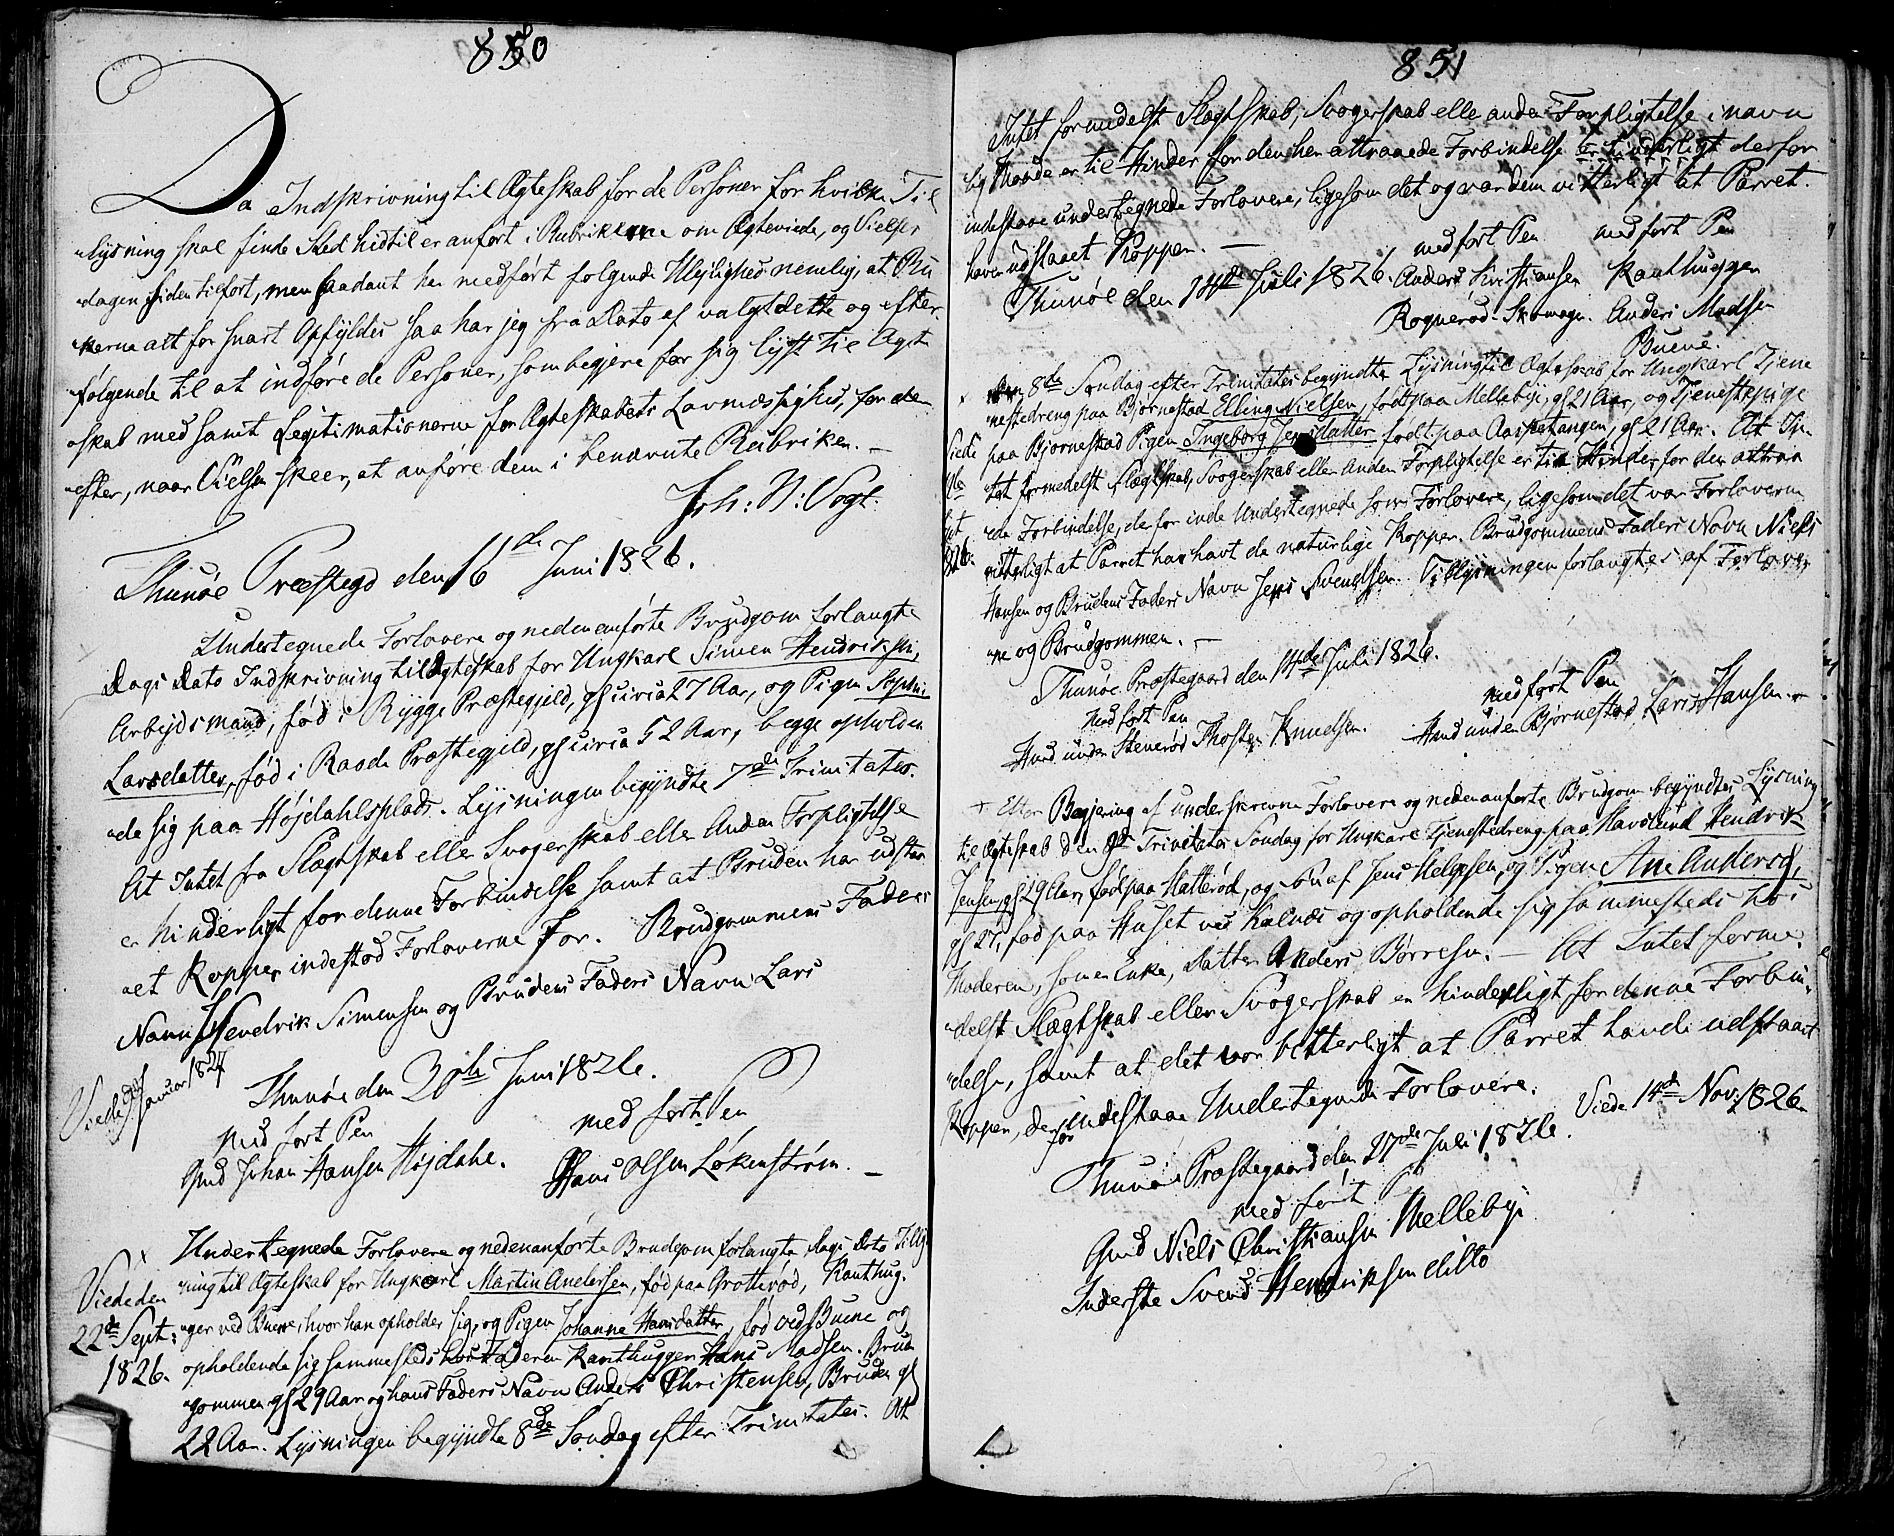 850
Da Indskrivning til Ægteskab for de Personer for hvilke Til
lysning skal finde Sted hidtil er anført i Rubrikerne om Ægteviede, og Vielses
dagen siden tilført, men saadant har medført følgende Ulejlighed nemlig, at Ru
-kerne alt for snart Opfyldes saa har jeg fra Dato af valgt dette og efter
følgende til at indføre de Personer, som begjere for sig lyst til Ægt
eskab med samt Legitimationerne for Ægteskabets Lovmæssighed, for der
-efter, naar Vielsen skeer, at anføre dem i benævnte Rubriker. —
Joh: N: Vogt.
Thunøe Præstegd den 16de Juni 1826.
Undertegnede Forlovere og nedenanførte Brudgom forlangte
Dags Dato Indskrivning til Ægteskab for Ungkarl Simen Hendriksen,
Arbejdsmand, fød i Rygge Præstegjeld, gl circa 27 Aar, og Pigen Sophie
Larsdatter, fød i Raade Præstegjeld, gl circa 52 Aar, begge opholden
-de sig paa Højdahlsplads. Lysningen begyndte 7de Trinitatis.
At Intet fra Slægtskab eller Svogerskab elle Anden Forpligtelse
er hinderligt for denne Forbindelse samt at Bruden har udstaa
-et Kopper indestod Forloverne for. Brudgommens Faders
Navn Hendrik Simensen og Brudens Faders Navn Lars
Viede Januar 1827
Thunøe den 30te Juni 1826.
med ført Pen
med ført Pen
Gmd Johan Hansen Højdahl.
Hans Olsen Løkenstrøm. —
Undertegnede Forlovere og nedenanførte Brudgom forlangte Dags Dato Tillys
Viede den
-ning til Ægteskab for Ungkarl Martin Andersen, fød paa Grotterød, Kanthug-
22de Sept:
-ger ved Buene, hvor han opholder sig, og Pigen Johanne Hansdatter, fød ved Buene og
1826.
opholdende sig sammesteds hos Faderen Kanthugger Hans Madsen. Brud
gommen gl 29 Aar og hans Faders Navn Anders Christensen, Bruden gl
22 Aar. Lysningen begyndte 8de Søndag efter Trinitatis. At
851
Intet formedelst Slægtskab, Svogerskab elle anden Forpligtelse i navn
lig Maade er til Hinder for den her attraaede Forbindelse er hinderligt derfor
indestaae undertegnede Forlovere, ligesom det og var dem vitterligt at Parret
haver udstaaet Kopper. —
med ført Pen
med ført Pen
Thunøe den 14de Juli 1826.
Anders Christiansen
Kanthugger
Rognerød Skomager.
Anders Madsen
Buene.
Den 8de Søndag efter Trinitatis begyndte Lysning til Ægteskab for Ungkarl Tjene
nestedreng paa Bjørnestad Elling Nielsen, født paa Mellebye, gl 21 Aar, og Tjenestepige
Viede
paa Bjørnestad Pigen Ingeborg Jensdatter født paa Aasketangen, gl 21 Aar. At In-
tet formedelst Slægtskab, Svogerskab eller Anden Forpligtelse er til Hinder for den attraa
-ede Forbindelse, derfor inde Undertegnede som Forlovere, ligesom det var Forloverne
vitterligt at Parret har havt de naturlige Kopper. Brudgommens Faders Navn Niels
Hansen og Brudens Faders Navn Jens Svendsen. Tillysningen forlangtes af Forlover
ne og Brudgommen. —
Thunøe Præstegaard den 14de Juli 1826.
med ført Pen
med ført Pen
Hmd under Stenerød Thosten Knudsen.
Hmd under Bjørnestad Lars Hansen. —
+ Efter Begjering af underskrevne Forlovere og nedenanførte Brudgom begyndtes Lysning
til Ægteskab den 9de Trinitatis Søndag for Ungkarl Tjenestedreng paa Havslund Hendrik
Jensen, gl 29 Aar, fød paa Hatterød, og Søn af Jens Helgesen, og Pigen Ane Andersd,
gl 27, fød paa Huset ved Kalnæs og opholdende sig sammesteds hos
Moderen, som er Enke, Datter Anders Børresen. — At Intet forme-
delst Slægtskab eller Svogerskab er hinderligt for denne Forbin-
delse, samt at det var bitterligt at Parret havde udstaaet
Kopper, derfor indestaae Undertegnede Forlovere.
Viede 14de Nov: 1826.
Thunøe Præstegaard den 27de Juli 1826.
med ført P
Gmd Niels Christiansen Mellebye
Inderste Svend Hendriksen ditto